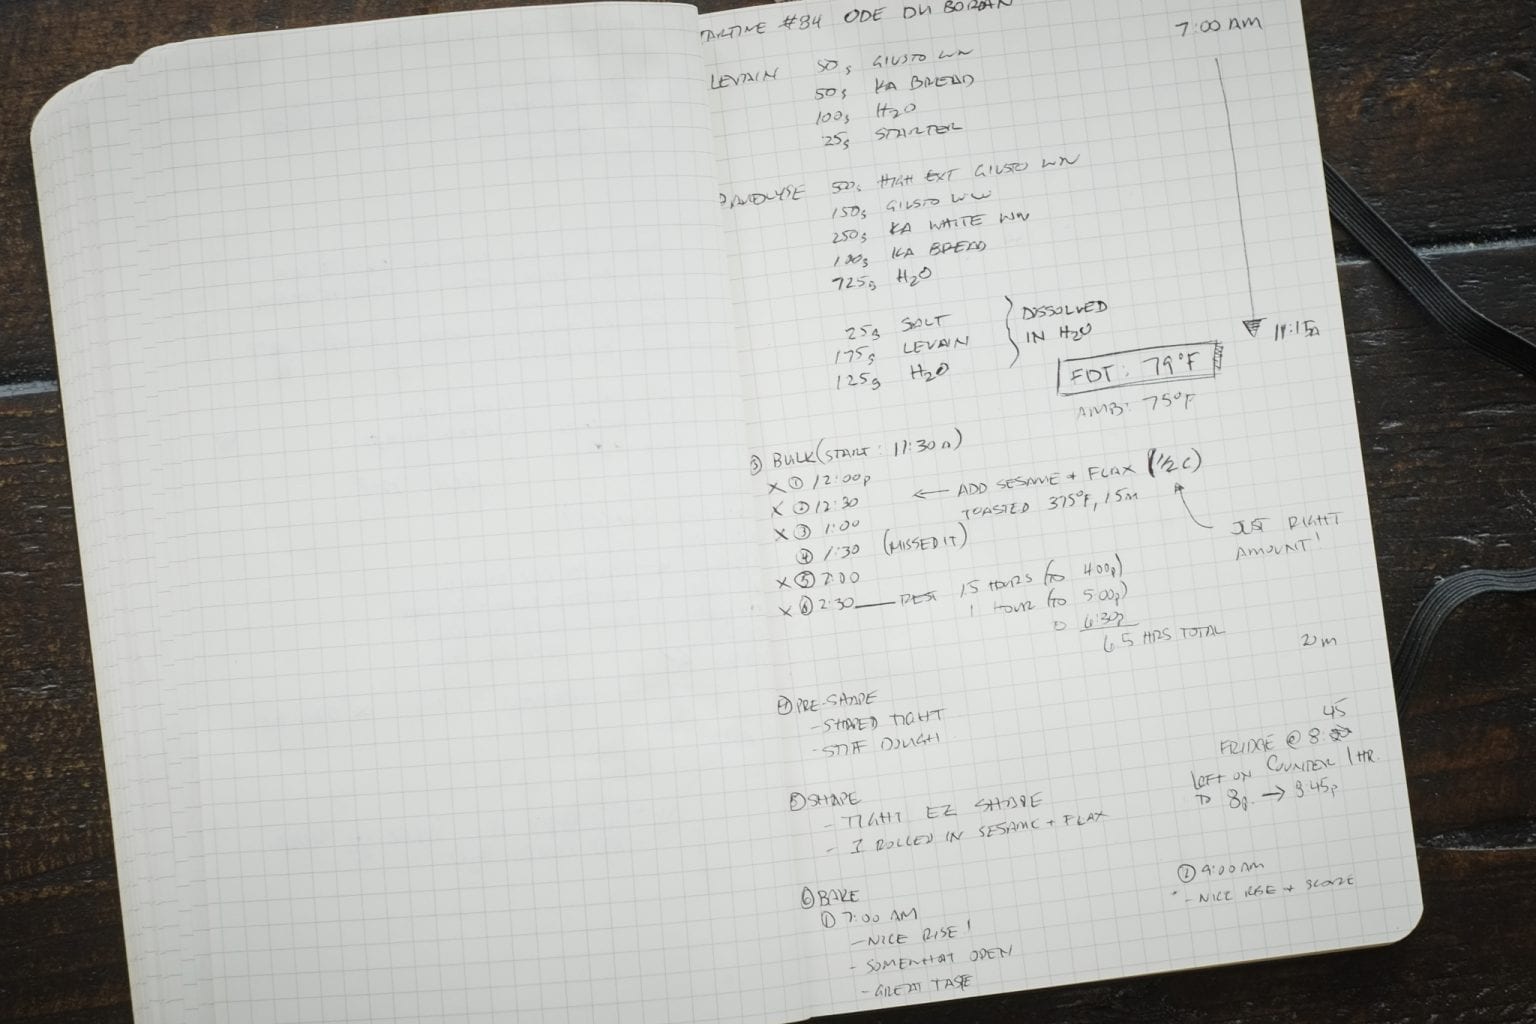 TARTINE #84 ODE DU BORDAN
7:00 AM
LEVAIN 50g GIUSTO WW
50g KA BREAD
100g H2O
25g STARTER
500g HIGH EXT GIUSTO WW
150g GIUSTO WW
250g KA WHITE WW
100g KA BREAD
725g H2O
25g SALT
175g LEVAIN
125g H2O
DISSOLVED
IN H2O
11:15a
FDT: 79°F
AMB: 75°F
③ BULK (START: 11:30a)
X ① 12:00p
X ② 12:30 ← ADD SESAME + FLAX (1/2 C)
TOASTED 375°F, 15m
X ③ 1:00
JUST RIGHT
AMOUNT!
④ 1:30 (MISSED IT)
X ⑤ 2:00
X ⑥ 2:30 — REST 1.5 HOURS (TO 4:00p)
1 HOUR (TO 5:00p)
6:30p
6.5 HRS TOTAL
20 m
④ PRE-SHAPE
- SHAPED TIGHT
- STIFF DOUGH
45
FRIDGE @ 8:
LEFT ON COUNTER 1 HR.
TO 8p. → 8:45p
⑤ SHAPE
- TIGHT EZ SHAPE
- I ROLLED IN SESAME + FLAX
⑥ BAKE
① 7:00 AM
- NICE RISE!
- SOMEWHAT OPEN
- GREAT TASTE
② 9:00 AM
- NICE RISE + SCORE